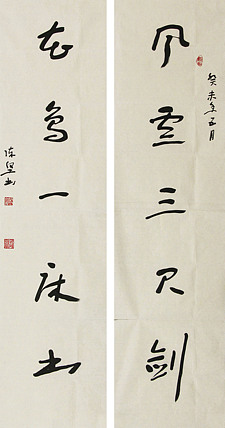 风云三尺剑
癸未年五月
花鸟一床书
陈坚书